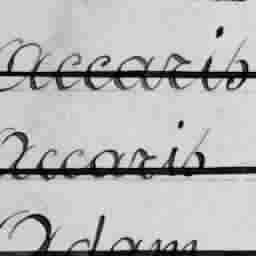 Accaris
Accaris
Adam